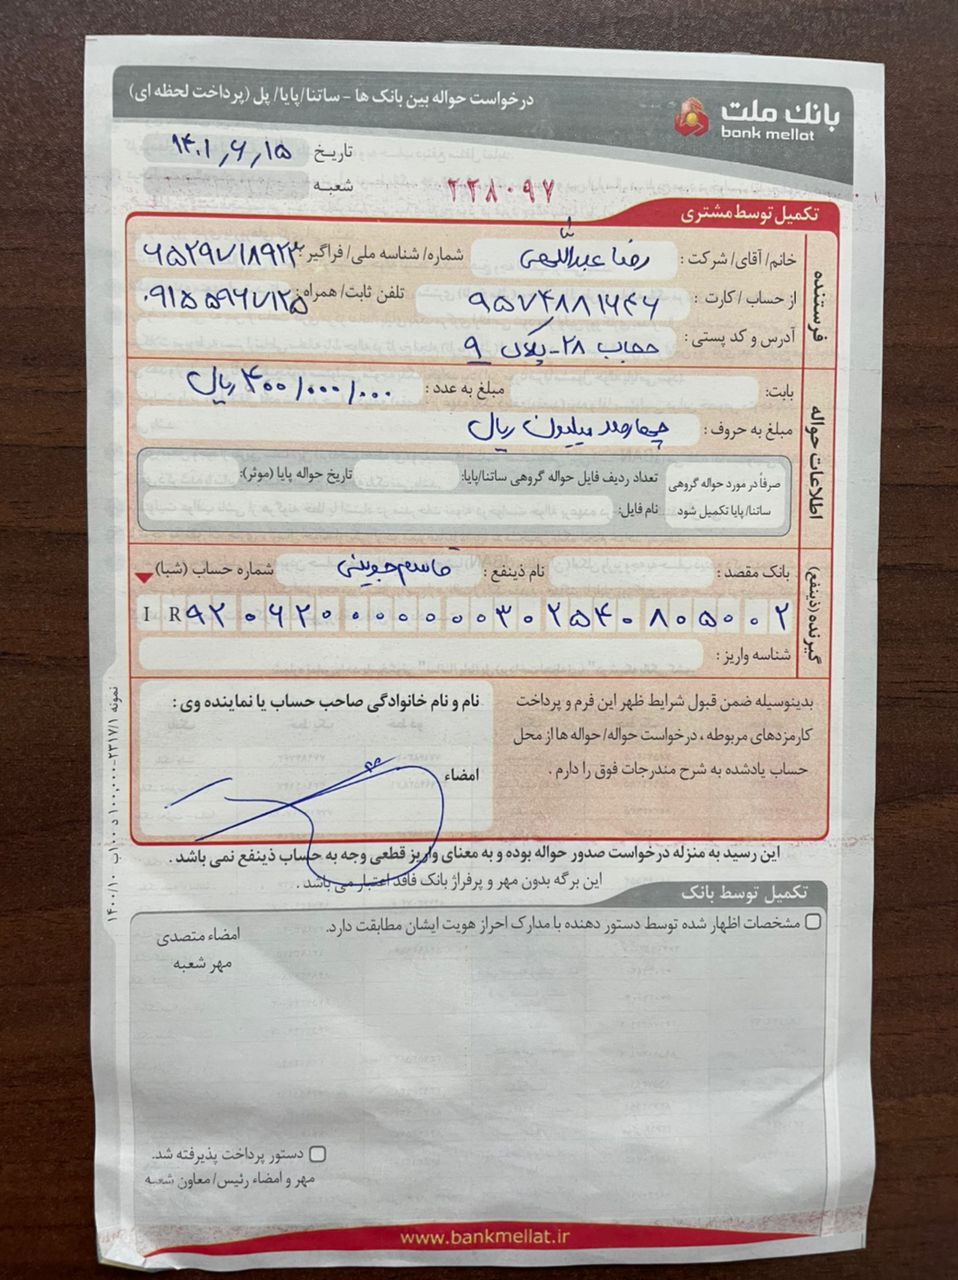 بانک ملت
bank mellat
درخواست حواله بین بانک ها - ساتنا/پایا/ پل (پرداخت لحظه ای)
تاریخ ۱۴۰۱,۶,۱۵
شعبه
۲۳۸۰۹۷
تکمیل توسط مشتری
فرستنده
خانم/ آقای/ شرکت : رضا عبداللهی شماره/ شناسه ملی/ فراگیر :
از حساب / کارت : تلفن ثابت/ همراه :
آدرس و کد پستی : حجاب ۲۸- پلاک ۹
اطلاعات حواله
بابت: مبلغ به عدد : ۴۰۰/۰۰۰/۰۰۰ ریال
مبلغ به حروف : چهارصد میلیون ریال
صرفاً در مورد حواله گروهی ساتنا/ پایا تکمیل شود
تعداد ردیف فایل حواله گروهی ساتنا/پایا: تاریخ حواله پایا (موثر):
نام فایل:
گیرنده (ذینفع)
بانک مقصد : نام ذینفع : قاسم جوینی شماره حساب (شبا)
IR ۹۲۰۶۲۰۰۰۰۰۰۰۳۰۲۵۴۰۸۰۵۰۰۲
شناسه واریز :
بدینوسیله ضمن قبول شرایط ظهر این فرم و پرداخت
کارمزدهای مربوطه ، درخواست حواله/ حواله ها از محل
حساب یادشده به شرح مندرجات فوق را دارم .
نام و نام خانوادگی صاحب حساب یا نماینده وی :
امضاء
این رسید به منزله درخواست صدور حواله بوده و به معنای واریز قطعی وجه به حساب ذینفع نمی باشد .
این برگه بدون مهر و پرفراژ بانک فاقد اعتبار می باشد .
تکمیل توسط بانک
مشخصات اظهار شده توسط دستور دهنده با مدارک احراز هویت ایشان مطابقت دارد.
امضاء متصدی
مهر شعبه
دستور پرداخت پذیرفته شد.
مهر و امضاء رئیس/ معاون شعبه
www.bankmellat.ir